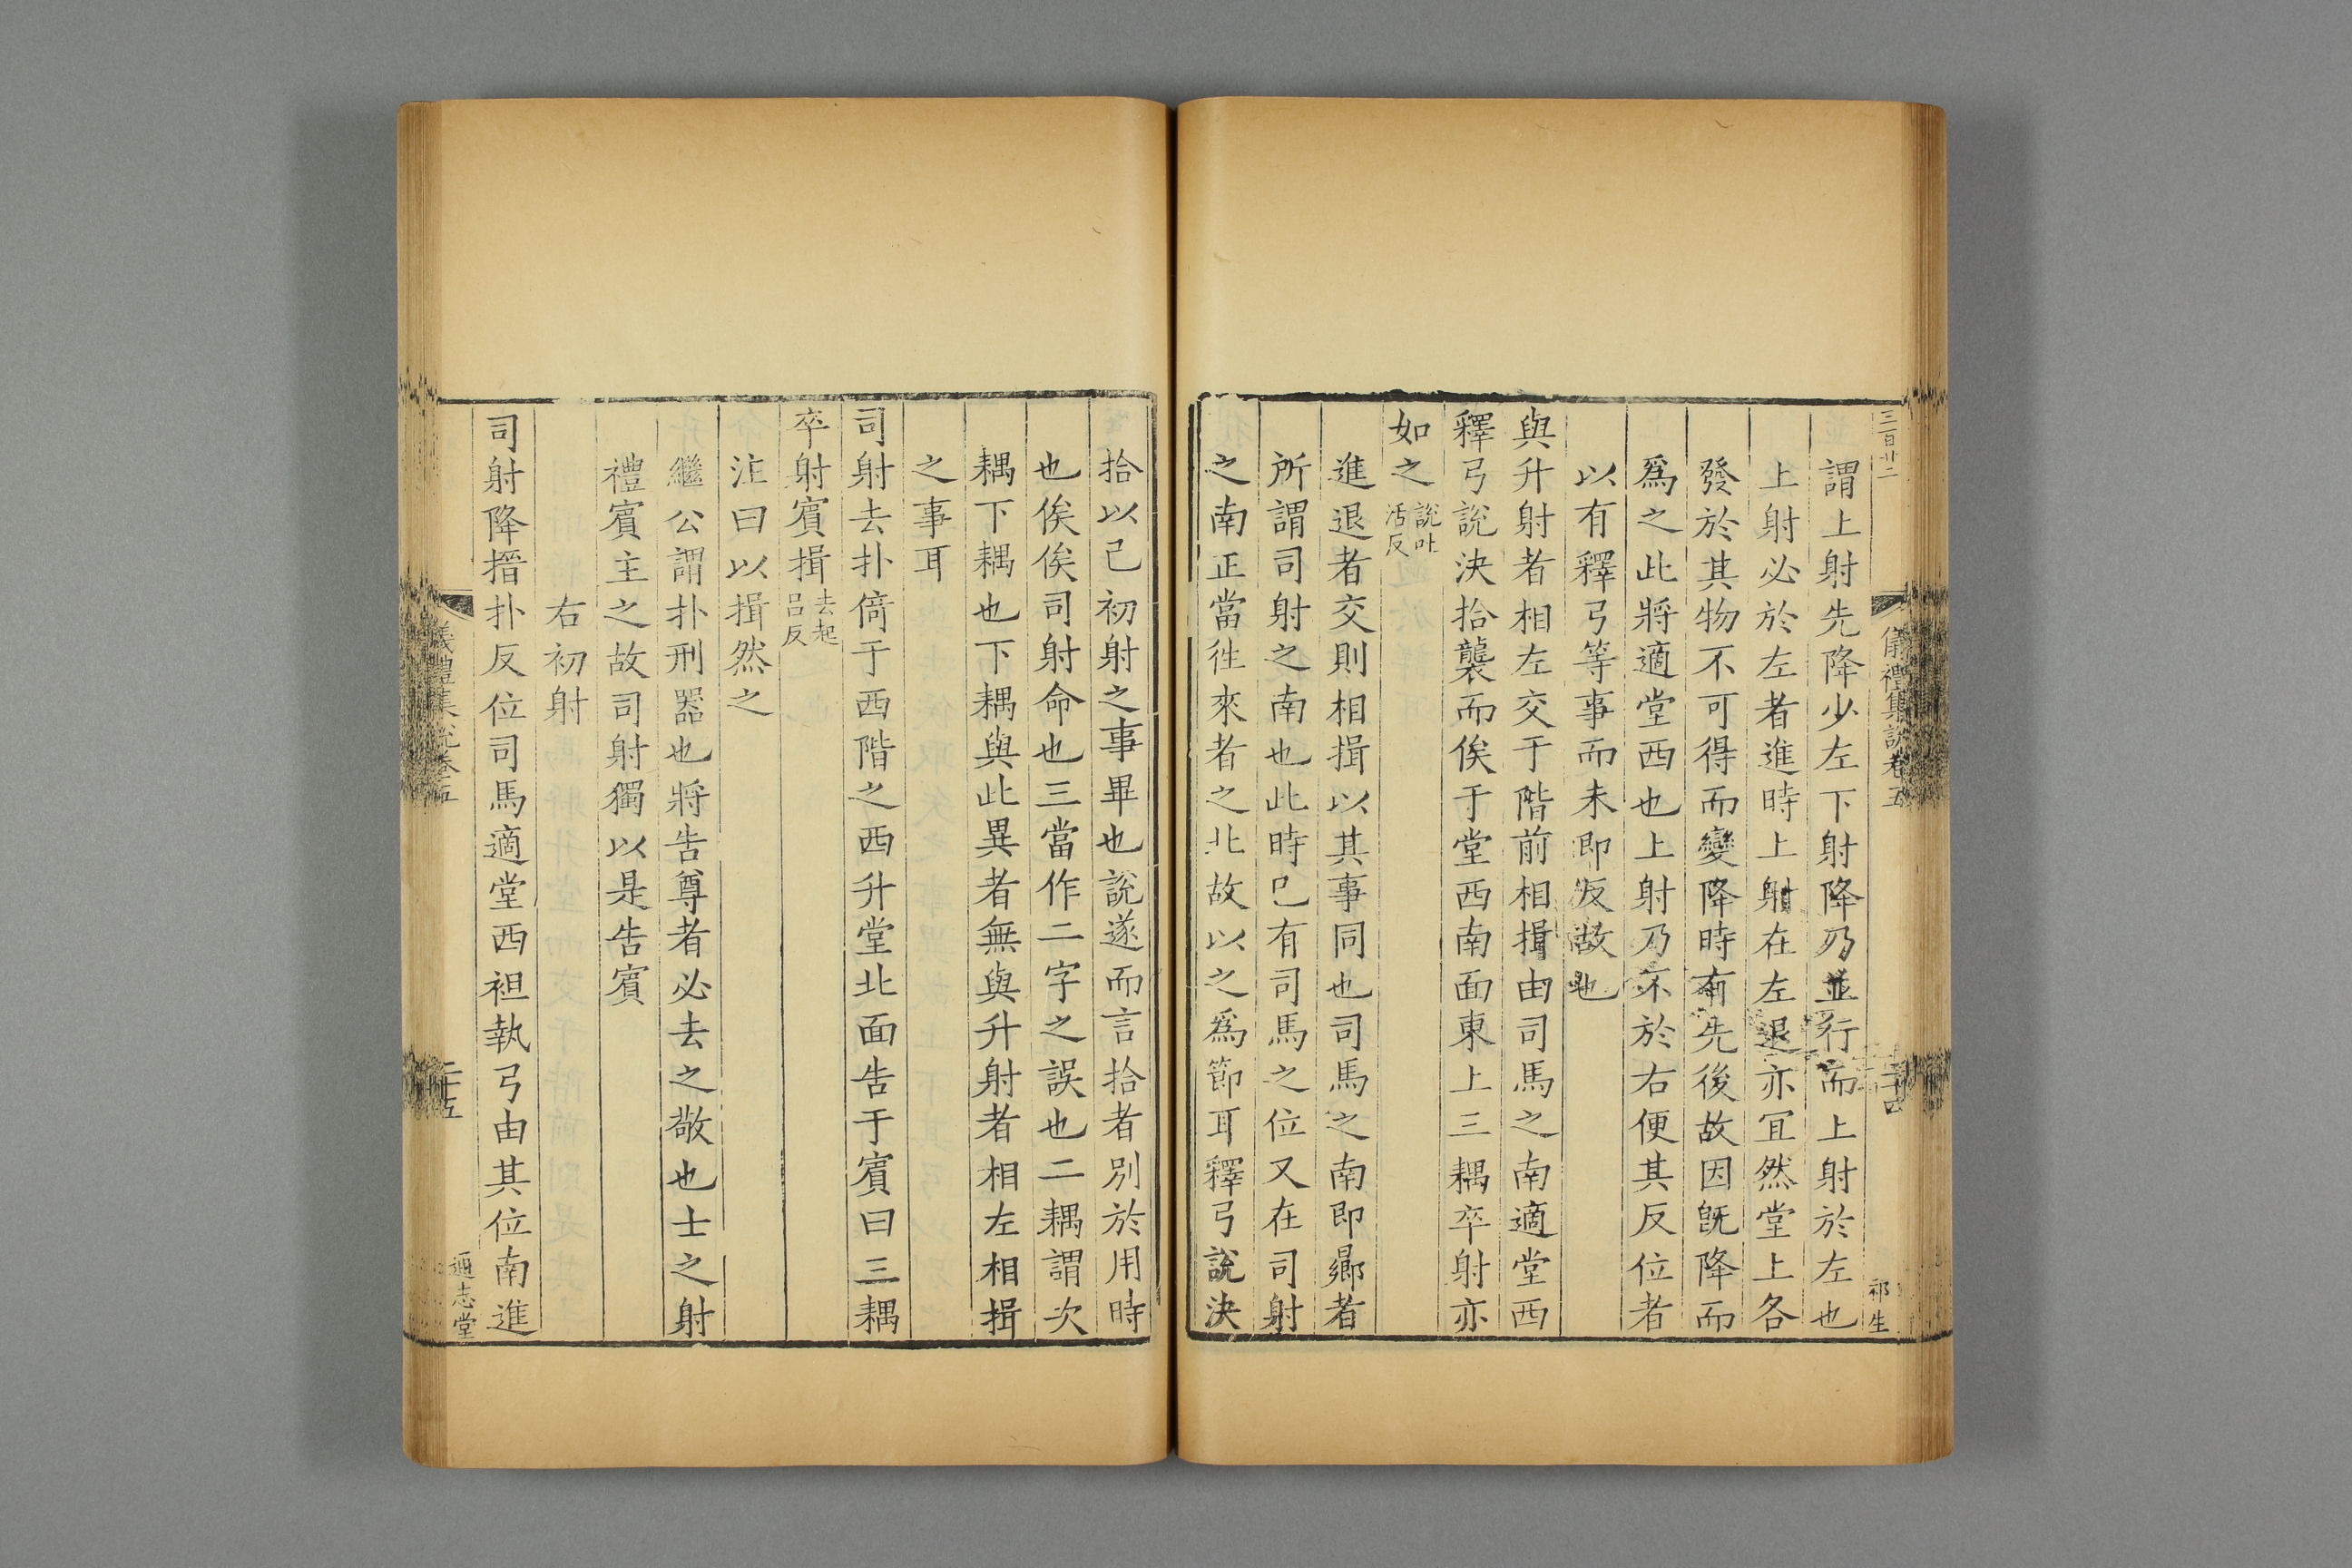 三百廿二
儀禮集説卷五
二十四
祁生
謂上射先降少左下射降乃並行而上射於左也
上射必於左者進時上射在左退亦宜然堂上各
發於其物不可得而變降時有先後故因旣降而
爲之此將適堂西也上射乃不於右便其反位者
以有釋弓等事而未即反故也
與升射者相左交于階前相揖由司馬之南適堂西
釋弓說決拾襲而俟于堂西南面東上三耦卒射亦
如之說吐活反
進退者交則相揖以其事同也司馬之南即鄉者
所謂司射之南也此時已有司馬之位又在司射
之南正當徃來者之北故以之爲節耳釋弓說決
拾以己初射之事畢也說遂而言拾者別於用時
也俟俟司射命也三當作二字之誤也二耦謂次
耦下耦也下耦與此異者無與升射者相左相揖
之事耳
司射去扑倚于西階之西升堂北面告于賓曰三耦
卒射賓揖去起呂反
注曰以揖然之
繼公謂扑刑器也將告尊者必去之敬也士之射
禮賓主之故司射獨以是告賓
右初射
司射降搢扑反位司馬適堂西袒執弓由其位南進
儀禮集説卷五
二十五
通志堂